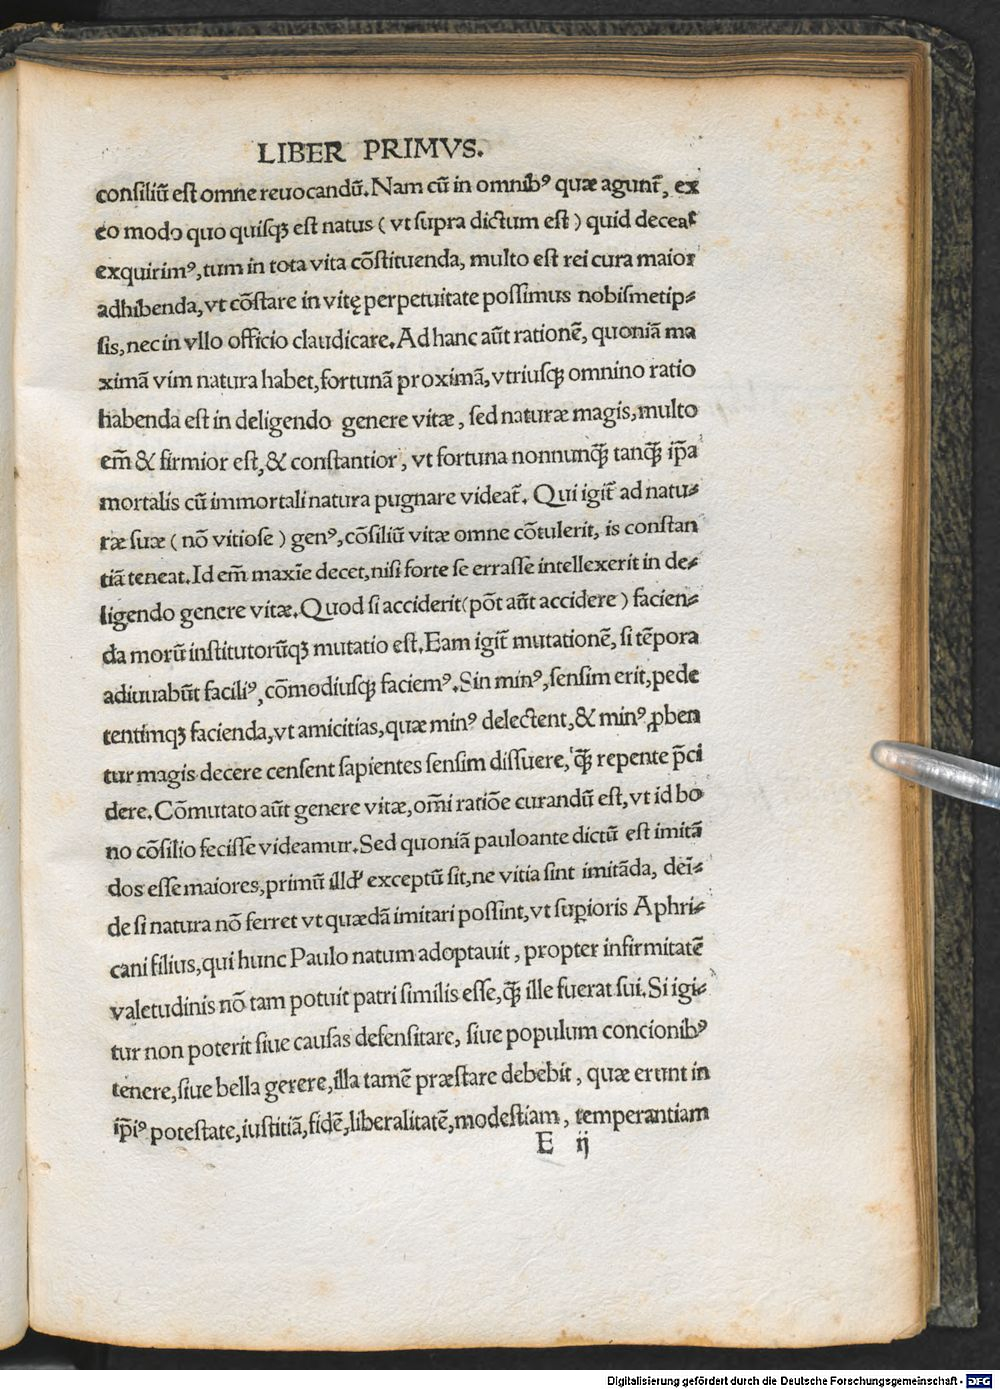 LIBER PRIMVS.
consiliũ est omne reuocandũ. Nam cũ in omnibꝰ quæ agunt̃, ex
eo modo quo quisqꝫ est natus ( vt supra dictum est ) quid deceat
exquirimꝰ, tum in tota vita cõstituenda, multo est rei cura maior
adhibenda, vt cõstare in vitę perpetuitate possimus nobismetip⸗
sis, nec in vllo officio claudicare. Ad hanc aũt rationẽ, quoniã ma
ximã vim natura habet, fortunã proximã, vtriusqꝫ omnino ratio
habenda est in deligendo genere vitæ, sed naturæ magis, multo
em̃ & firmior est, & constantior, vt fortuna nonnunq̃ꝫ tanq̃ꝫ ip̃a
mortalis cũ immortali natura pugnare videat̃. Qui igit̃ ad natu⸗
ræ suæ ( nõ vitiose ) genꝰ, cõsiliũ vitæ omne cõtulerit, is constan
tiã teneat. Id em̃ maxĩe decet, nisi forte se errasse intellexerit in de⸗
ligendo genere vitæ. Quod si acciderit ( põt aũt accidere ) facien⸗
da morũ institutorũqꝫ mutatio est. Eam igit̃ mutationẽ, si tẽpora
adiuuabũt faciliꝰ, cõmodiusqꝫ faciemꝰ. Sin minꝰ, sensim erit, pede
tentimqꝫ facienda, vt amicitias, quæ minꝰ delectent, & minꝰ ꝓben
tur magis decere censent sapientes sensim dissuere, q̃ꝫ repente p̃ci
dere. Cõmutato aũt genere vitæ, om̃i ratiõe curandũ est, vt id bo
no cõsilio fecisse videamur. Sed quoniã pauloante dictũ est imitã
dos esse maiores, primũ illd' exceptũ sit, ne vitia sint imitãda, deĩ⸗
de si natura nõ ferret vt quædã imitari possint, vt suꝑioris Aphri⸗
cani filius, qui hunc Paulo natum adoptauit, propter infirmitatẽ
valetudinis nõ tam potuit patri similis esse, q̃ꝫ ille fuerat sui. Si igi⸗
tur non poterit siue causas defensitare, siue populum concionibꝰ
tenere, siue bella gerere, illa tamẽ præstare debebit, quæ erunt in
ip̃iꝰ potestate, iustitiã, fidẽ, liberalitatẽ, modestiam, temperantiam
E ij
Digitalisierung gefördert durch die Deutsche Forschungsgemeinschaft - DFG